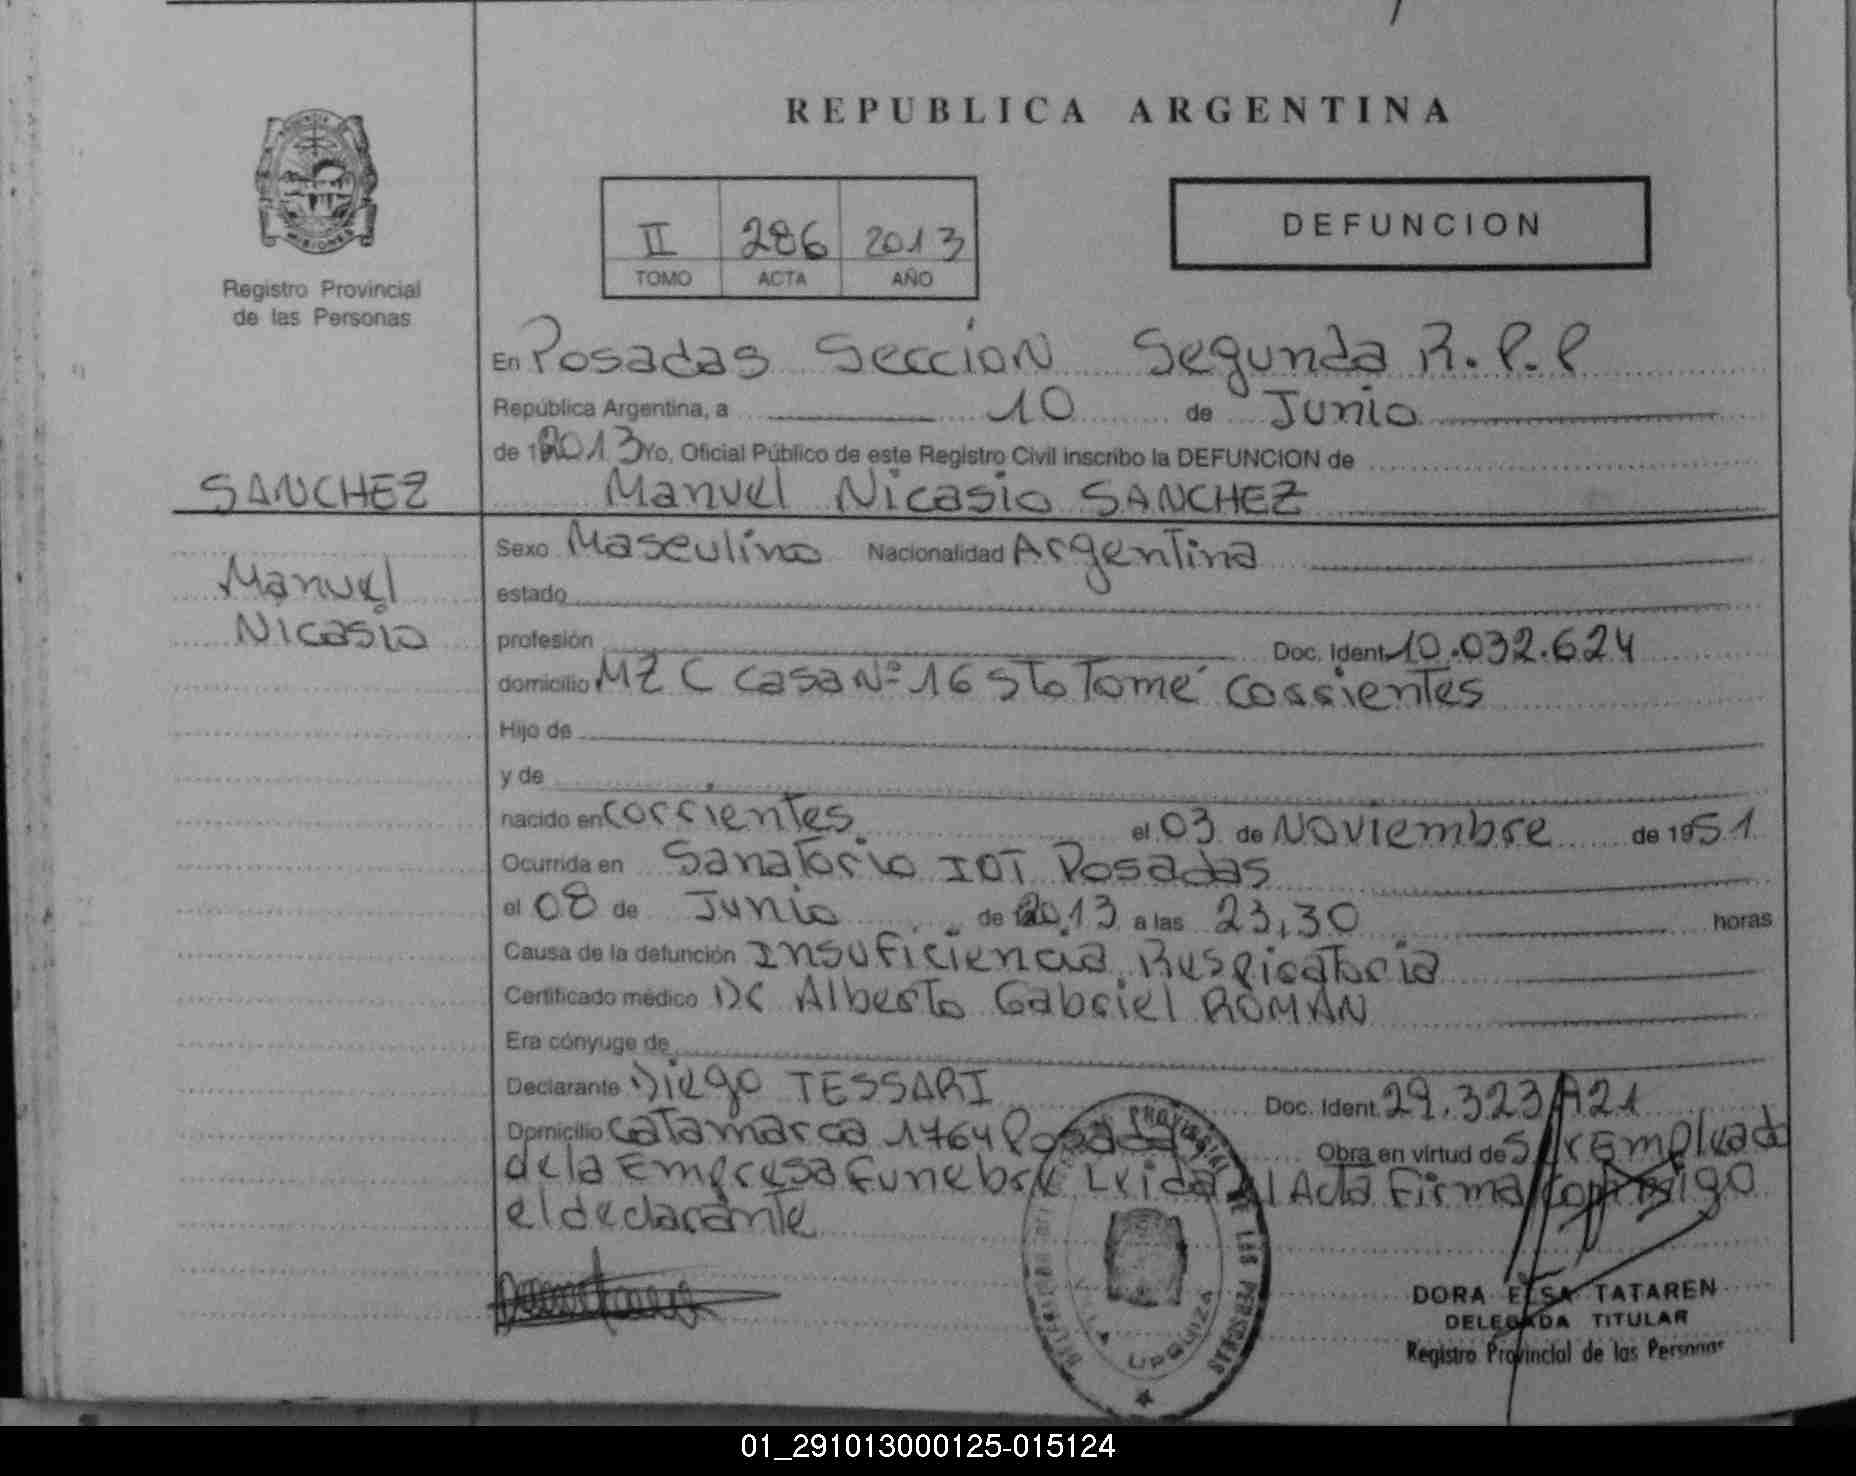 REPUBLICA ARGENTINA
PROVINCIA
MISIONES
Registro Provincial
de las Personas
II 286 2013
TOMO ACTA AÑO
DEFUNCION
En Posadas Sección Segunda R.P.P
República Argentina, a 10 de Junio
de 2013 Yo, Oficial Público de este Registro Civil inscribo la DEFUNCION de
SANCHEZ
Manuel Nicasio SANCHEZ
Manuel
Nicasio
Sexo Masculino Nacionalidad Argentina
estado
profesión Doc. Ident. 10.032.624
domicilio MZ C Casa Nº 16 Sto Tomé Corrientes
Hijo de
y de
nacido en Corrientes el 03 de Noviembre de 1951
Ocurrida en Sanatorio IOT Posadas
el 08 de Junio de 2013 a las 23,30 horas
Causa de la defunción Insuficiencia Respiratoria
Certificado médico Dr Alberto Gabriel ROMAN
Era cónyuge de
Declarante Diego TESSARI Doc. Ident. 29.323 921
Domicilio Catamarca 1764 Posadas Obra en virtud de Ser Empleado
de la Empresa Funebre Leida el Acta Firma conmigo
el declarante
PROVINCIAL DE LAS PERSONAS
URQUIZA
DORA ELSA TATAREN
DELEGADA TITULAR
Registro Provincial de las Personas
01_291013000125-015124